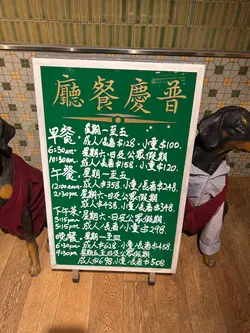 普慶餐廳
早餐 星期一至五
成人/長者$128.小童$100.
6:30am 星期六.日及公眾假期
10:30am 成人/長者$158.小童$120.
午餐. 星期一至五
12:00nn 成人$358.小童/長者$248.
2:30pm 星期六.日及公眾假期
成人$398.小童/長者$348.
下午茶. 星期六.日及公眾假期
3:15pm 成人/長者$348.小童$298.
5:15pm
晚餐. 星期一至五
6:30pm 成人$628.小童/長者$458.
9:30pm 星期六.日及公眾假期
成人$698.小童/長者$508